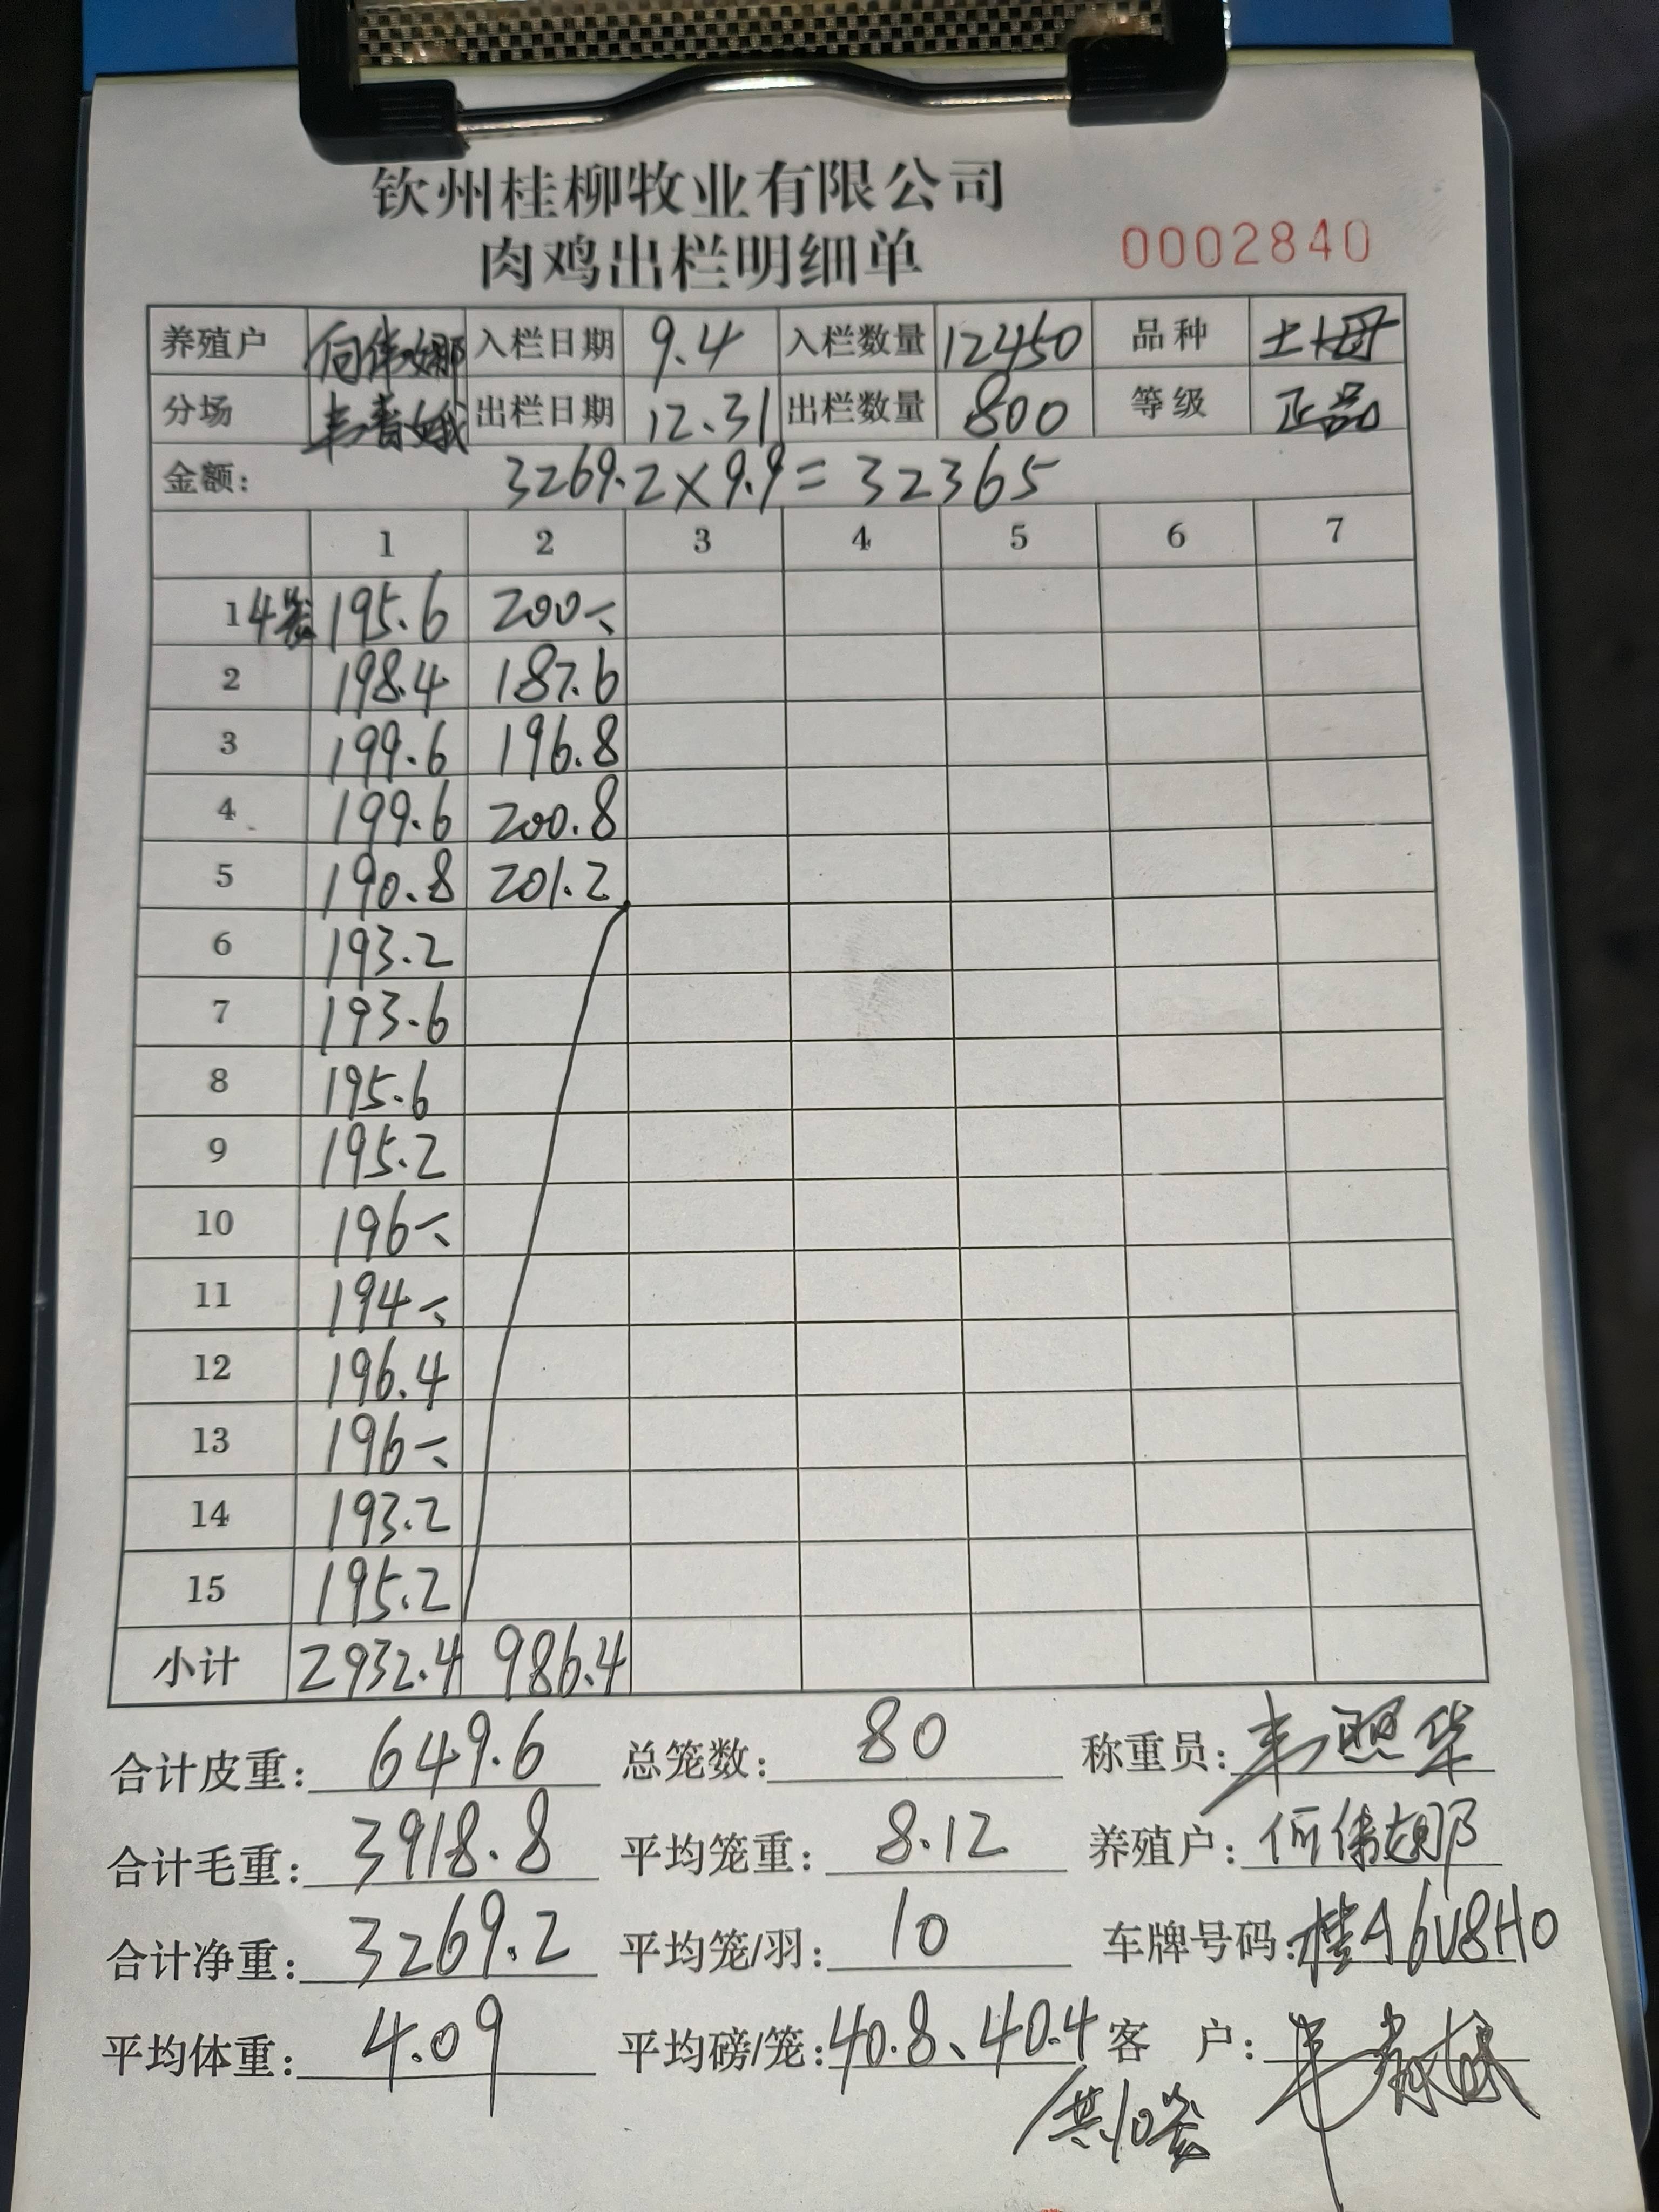 钦州桂柳牧业有限公司
肉鸡出栏明细单
0002840
养殖户 何伟娜 入栏日期 9.4 入栏数量 12450 品种 土大母
分场 出栏日期 12.31 出栏数量 800 等级 正品
金额: 3269.2×9.9=32365
1 2 3 4 5 6 7
1 4笼 195.6 200
2 198.4 187.6
3 199.6 196.8
4 199.6 200.8
5 190.8 201.2
6 193.2
7 193.6
8 195.6
9 195.2
10 196
11 194
12 196.4
13 196
14 193.2
15 195.2
小计 2932.4 986.4
合计皮重: 649.6 总笼数: 80 称重员: 韦照华
合计毛重: 3918.8 平均笼重: 8.12 养殖户: 何伟娜
合计净重: 3269.2 平均笼/羽: 10 车牌号码: 桂A6V8H0
平均体重: 4.09 平均磅/笼: 40.8、40.4 客 户:
共10笼